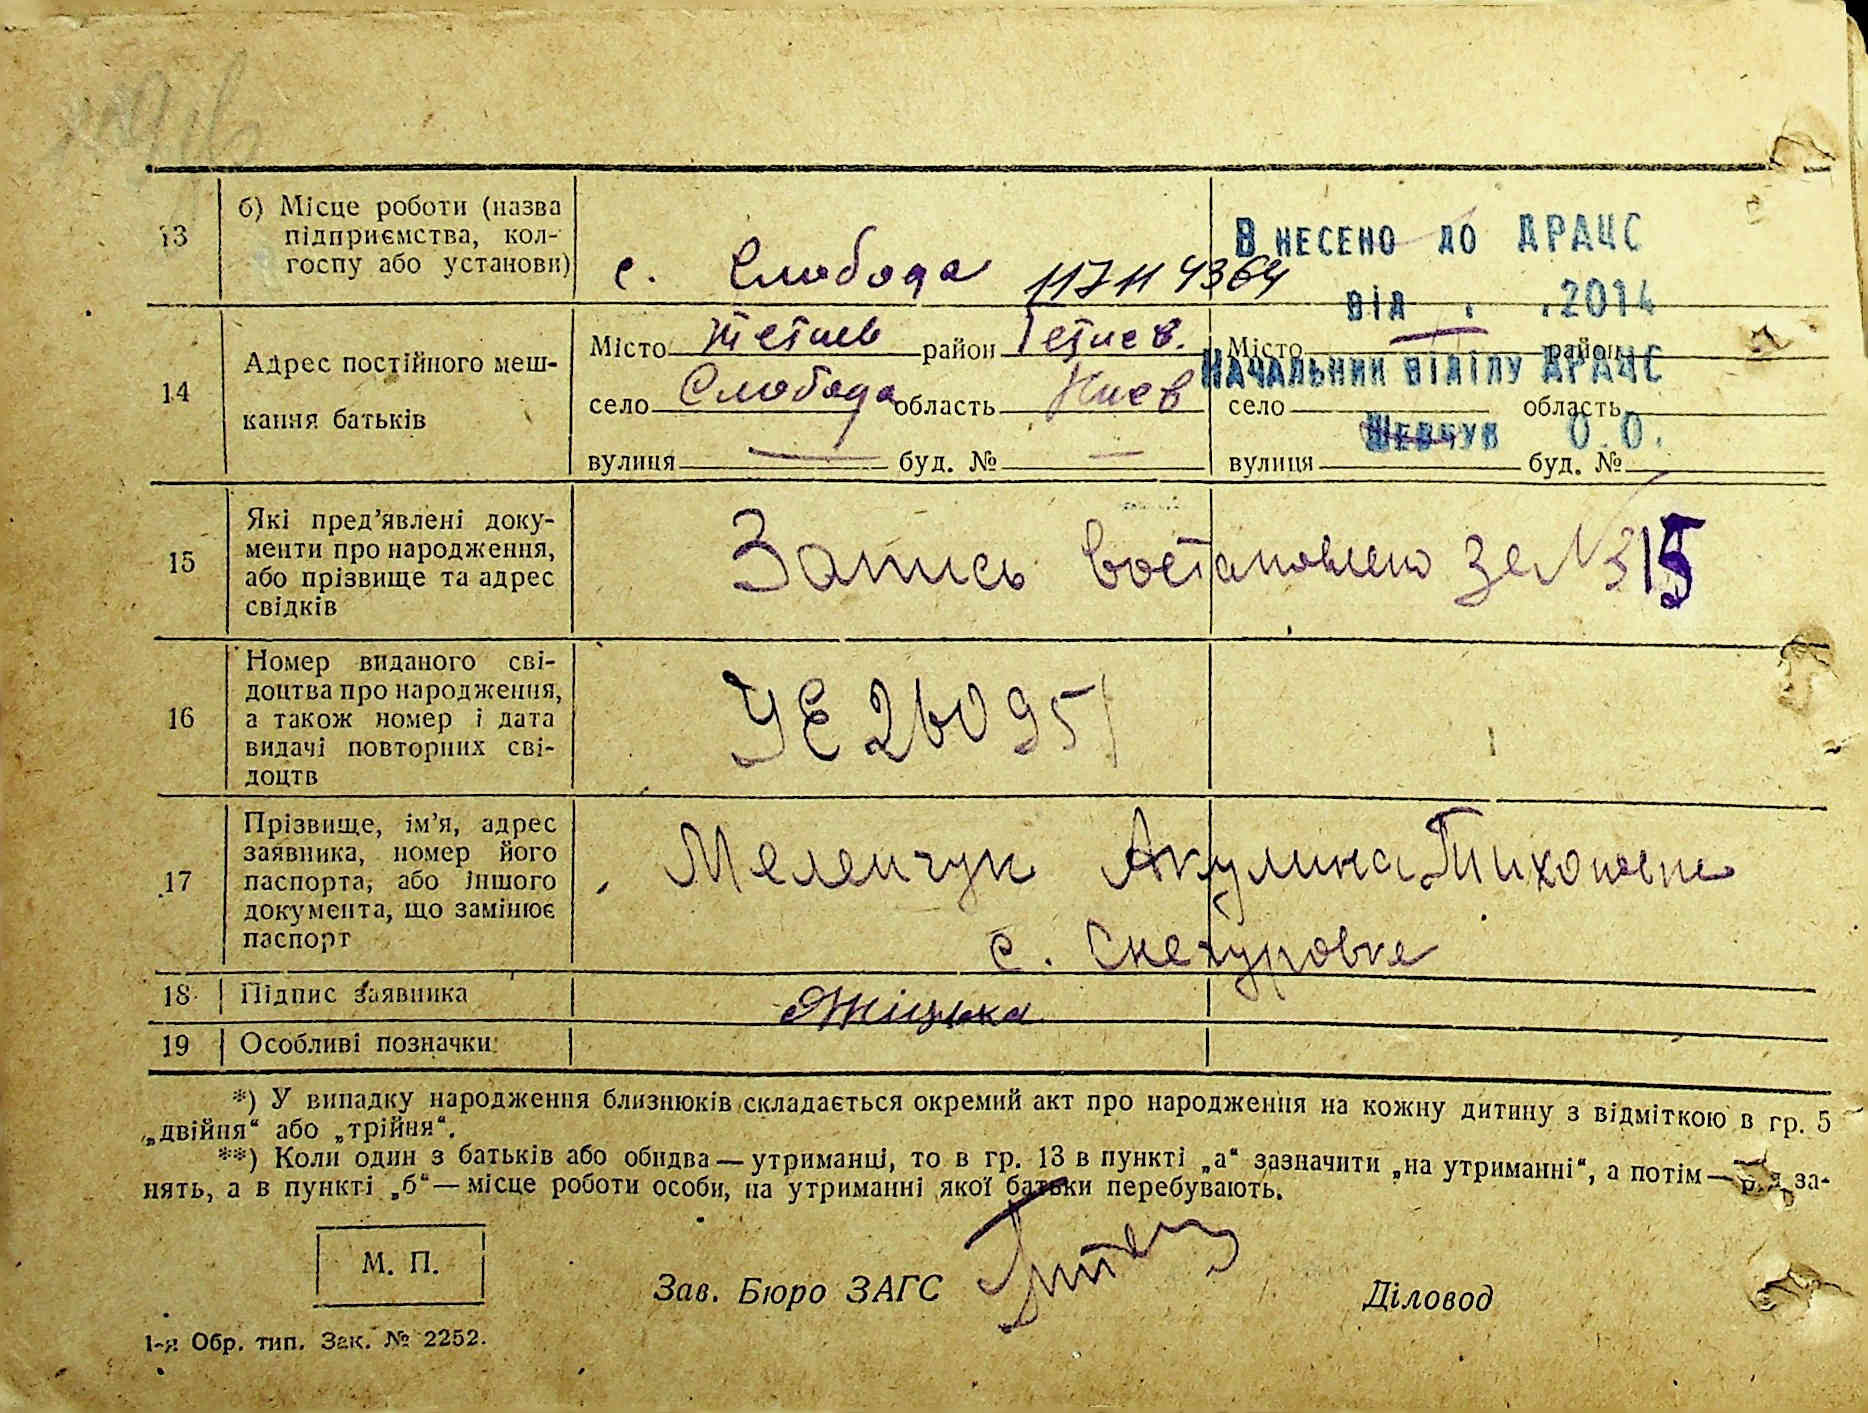 13
б) Місце роботи (назва
підприємства, кол-
госпу або установи)
с. Слобода 117114364
Внесено до ДРАЦС
від . .2014
Начальник відділу ДРАЦС
Шевчук О.О.
14
Адрес постійного меш-
кання батьків
Місто Тетиев район Тетиев.
село Слобода область Киев
вулиця — буд. № —
Місто — район
село область
вулиця буд. №
15
Які пред'явлені доку-
менти про народження,
або прізвище та адрес
свідків
Запись востановлено за № 315
16
Номер виданого сві-
доцтва про народження,
а також номер і дата
видачі повторних сві-
доцтв
УЕ 260951
17
Прізвище, ім'я, адрес
заявника, номер його
паспорта, або іншого
документа, що замінює
паспорт
Меленчук Акулина Тихоновна
с. Снегуровка
18 Підпис заявника
19 Особливі позначки:
*) У випадку народження близнюків складається окремий акт про народження на кожну дитину з відміткою в гр. 5
„двійня“ або „трійня“.
**) Коли один з батьків або обидва—утриманці, то в гр. 13 в пункті „а“ зазначити „на утриманні“, а потім— рід за-
нять, а в пункті „б“—місце роботи особи, на утриманні якої батьки перебувають.
М. П.
Зав. Бюро ЗАГС
Діловод
1-я Обр. тип. Зак. № 2252.